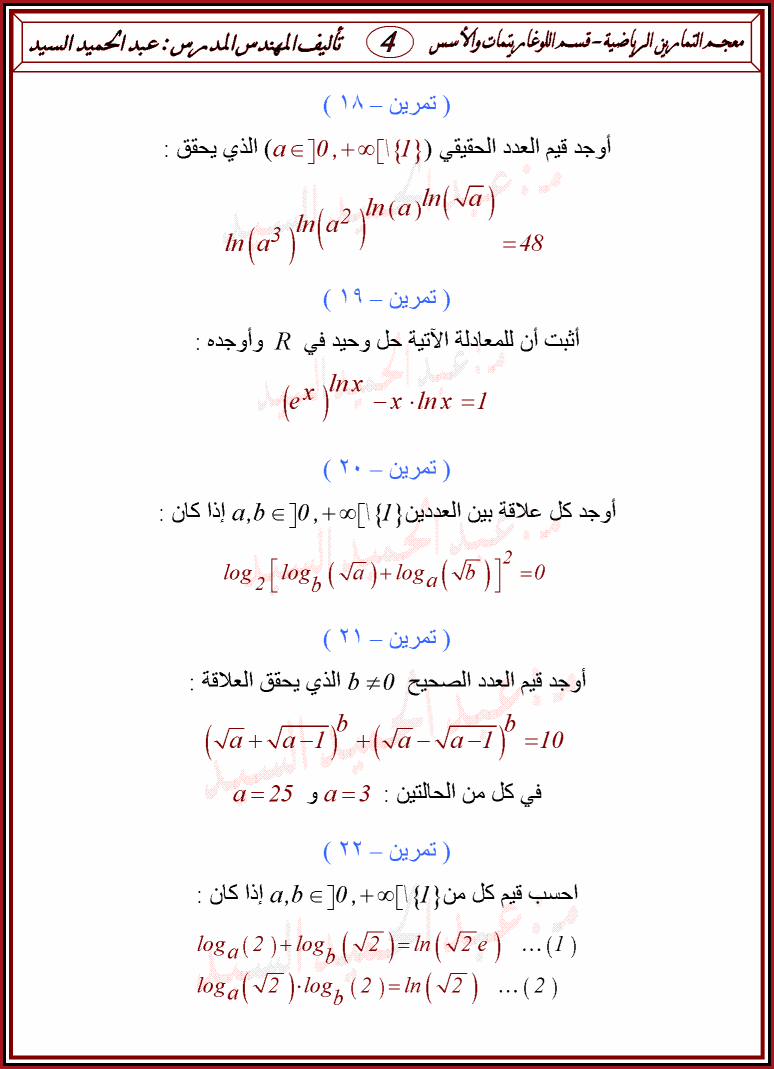 معجم التمارين الرياضية – قسم اللوغاريتمات والأسس 4 تأليف المهندس المدرس : عبد الحميد السيد
( تمرين – ١٨ )
أوجد قيم العدد الحقيقي (a ∈ ]0 , +∞[\{1}) الذي يحقق :
ln(a^3)^ln(a^2)^ln(a)^ln(√a) = 48
( تمرين – ١٩ )
أثبت أن للمعادلة الآتية حل وحيد في R وأوجده :
(e^x)^lnx – x · lnx = 1
( تمرين – ٢٠ )
أوجد كل علاقة بين العددين a,b ∈ ]0 , +∞[\{1} إذا كان :
log_2[ log_b(√a) + log_a(√b) ]^2 = 0
( تمرين – ٢١ )
أوجد قيم العدد الصحيح b ≠ 0 الذي يحقق العلاقة :
(√a + √(a–1))^b + (√a – √(a–1))^b = 10
في كل من الحالتين : a = 3 و a = 25
( تمرين – ٢٢ )
احسب قيم كل من a,b ∈ ]0 , +∞[\{1} إذا كان :
log_a(2) + log_b(√2) = ln(√2 e) ...(1)
log_a(√2) · log_b(2) = ln(√2) ...(2)
عبد الحميد السيد
عبد الحميد السيد
عبد الحميد السيد
عبد الحميد السيد
عبد الحميد السيد